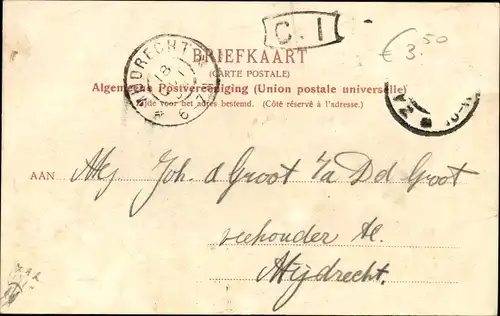 C. 1
€ 3.50
BRIEFKAART
(CARTE POSTALE)
Algemeene Postvereeniging (Union postale universelle)
Zijde voor het adres bestemd. (Côté réservé à l'adresse.)
MIJDRECHT
18
AAN Joh. d Groot D d Groot
veehouder
Mijdrecht.